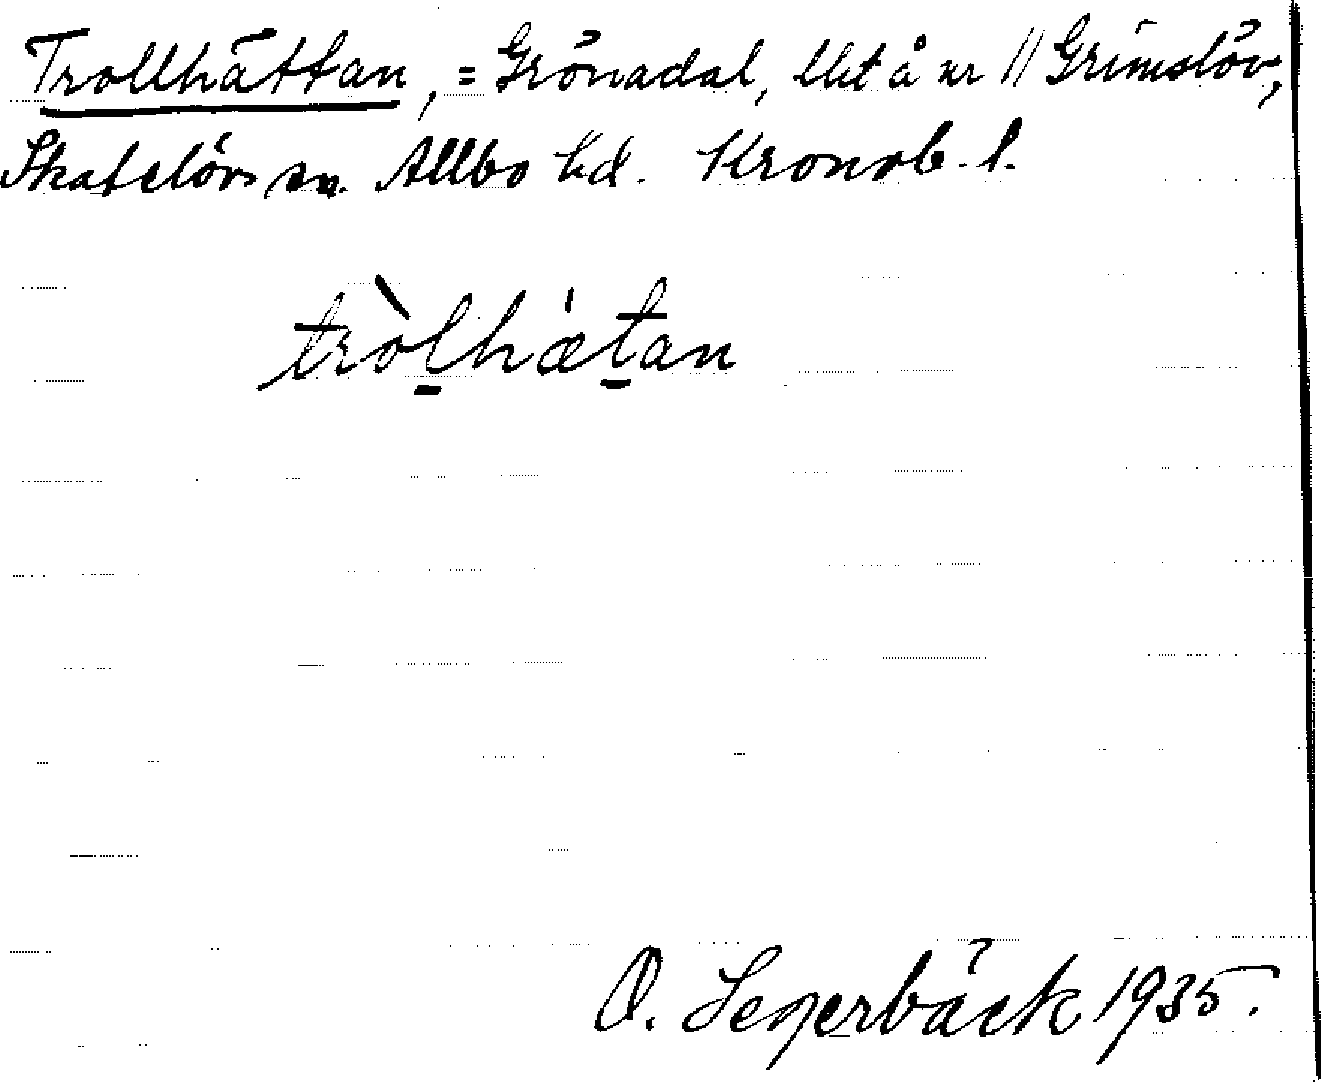 Trollhättan, = Grönadal, lht å nr 11 Grimslöv,
Skatelövs sn. Allbo hd. Kronob. l.
tròl̠hæ̍t̠an
O. Segerbäck 1935.